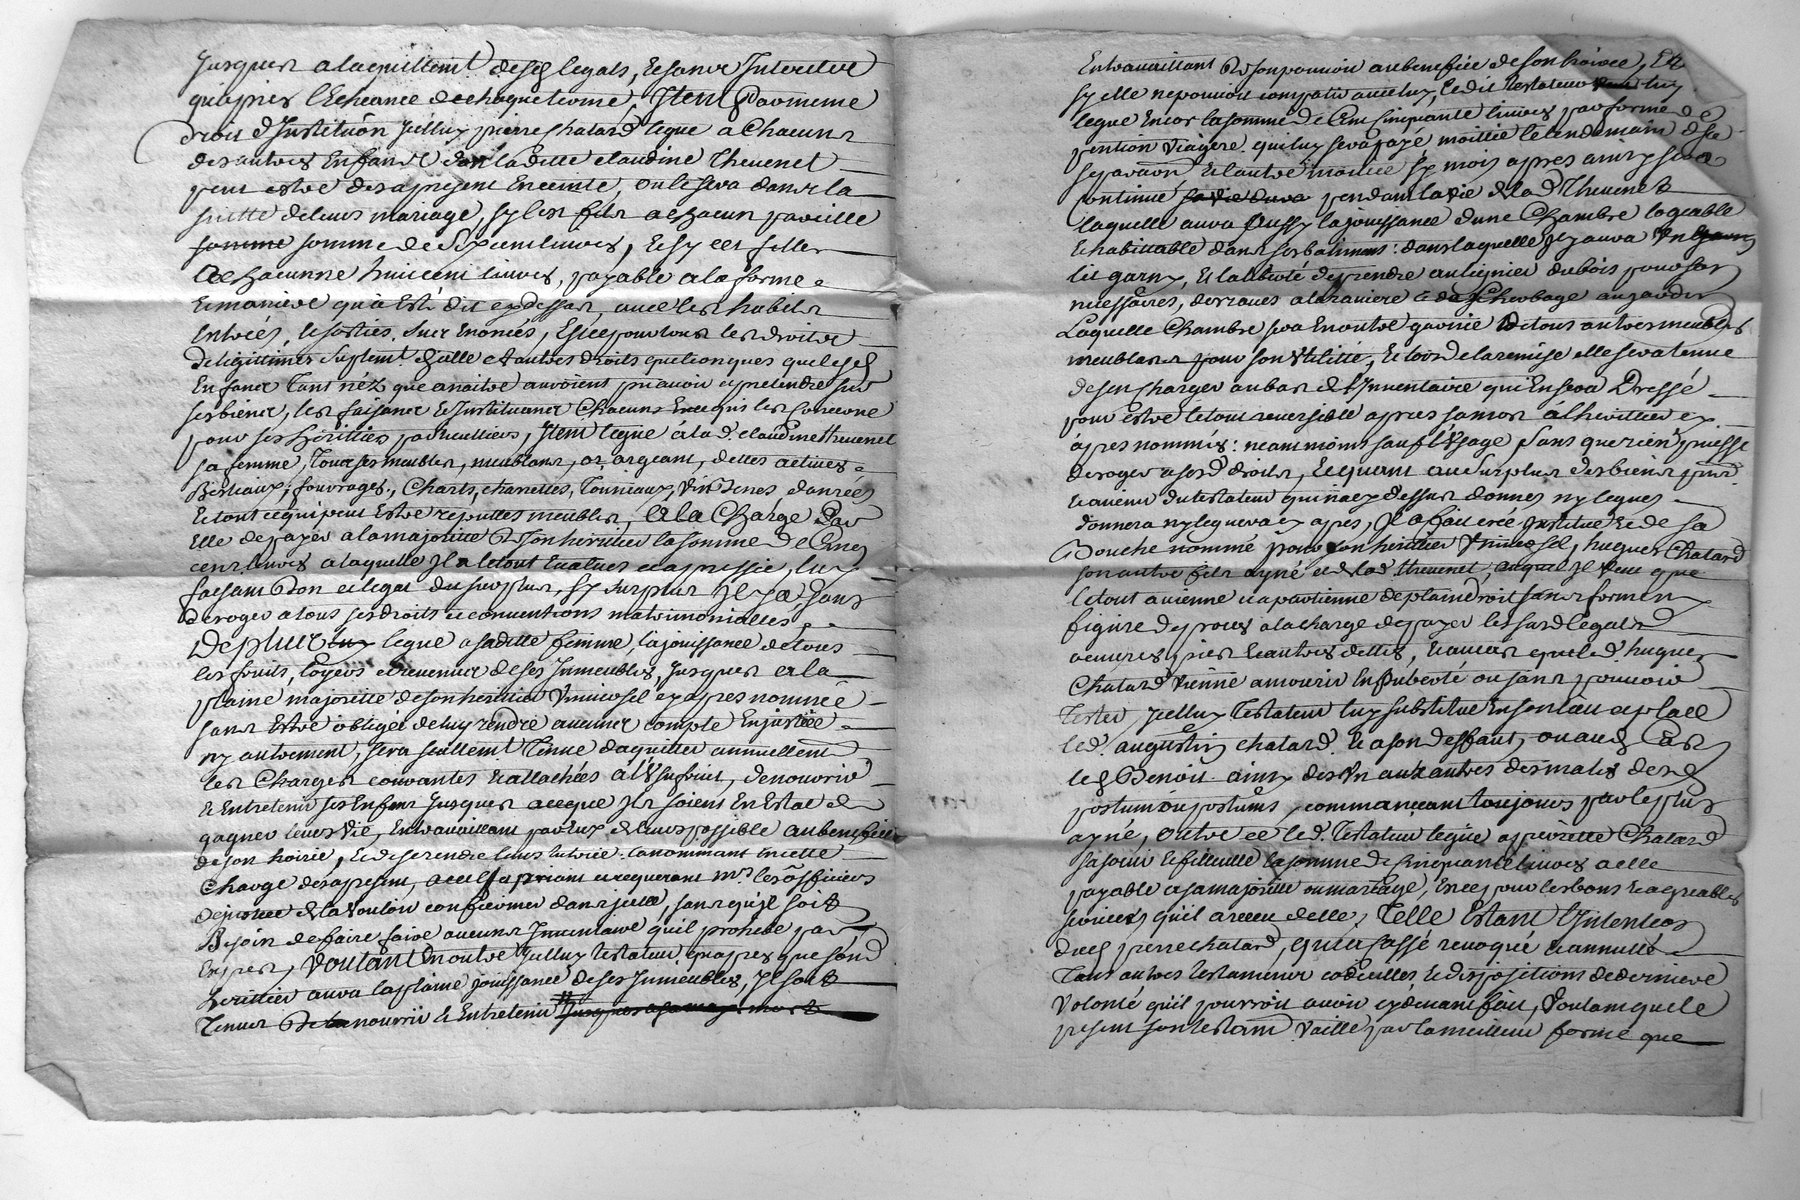 Jusques a laquittemt. desd legats, et sans Interetet
qu'apres l'Echeance de chaque terme, Item Par meme
droit d'Institu͠on Jcelluy pierre Chatard legue a Chacuns
des autres Enfans dont laditte claudine Thevenet
peut estre des apresent Enceinte, ou le sera dans la
suitte de leurs mariage, sy les fils a chacun pareille
somme somme de six cent livres, et sy cest filles
a chacunne huit cent livres, payable a la forme
et maniere qu'a Esté dit cy dessus, avec les habits
Entrées, et sorties, sus Enoncés, Et ce pour tous les droits
de legittimes suplemt. & autres droits quelconques que lesd
Enfans Tant néz que anaitre auroient pu avoir et pretendre sur
ses biens, les faisant et Instituant Chacuns En ce qui les concerne
pour ses héritiers particulliers, Item legue à la d. claudine thevenet
sa femme, Tous ses meubles, meublans, or, argeant, dettes actives
Bestiaux, fourrages, Charts, charrettes, Tonneaux, vin danrées
et tout ce qui peut Estre reputtés meubles, A la Charge Par
Elle de payer a la majoritté de son héritier la somme de Cinq
cent livres a laquelle Jl a le tout Evalués et apressie, luy
faisant Don et legat du surplus, sy surplus Jl y a sans
deroger a tous ses droits et conventions matrimonialles
De plus luy legue a saditte femme, la jouissance de tous
les fruits, loyers et revenus de ses Jmmeubles, Jusques a la
plaine majoritté de son heritier Universel cy apres nommé
sans Estre obligée de luy rendre aucuns compte En justice
ny autrement, sera seullemt. Tenue daquitter annuellemt
les Charges courantes et attachées a l'Usufruit, de nourrir
& Entretenir ses Enfans Jusques a ceque Jls soient En Estat de
gagner leurs vie, En travaillant par Eux de leurs possible au benefice
de son hoirie, et de se rendre leurs tutrice. la nommant En cette
Charge des apresent, a cell fa priant et requerant mrs. les officiers
de justice de la vouloir confirmer dans jcelle, sans qu'jl soit
Besoin de faire faire aucuns Jnventaire qu'il prohibe par
Expres, Voulant En outre Jcelluy testateur qu'apres que sond
herittier aura la plaine jouissance de ses Jmmeubles, Jl soit
Tenus De la nourrir & Entretenir Jusques a sa mort
En travaillant de son pouvoir au benefice de son hoirie, Et
sy elle ne pouvoit compatir avec luy, ledit testateur luy
legue Encor la somme de Cent Cinquante livres par forme de
pention Viagere, qui luy sera payé moittié le lendemain de sa
separa͠on, et l'autre moittié six mois apres ainsy sera
continué sa vie dura pendant la vie de la d. Thevenet
laquelle aura Aussy la jouissance d'une Chambre logeable
et habittable dans ses batimens: dans laquelle Jl y aura Un
lit garny, et la liberté de prendre au bois pour ses
necessaires, des raves a la raviere et de l'herbage au jardin
Laquelle Chambre sera En outre garnie de tous autres meubles
meublans pour son Utilitté, et lors de la remise elle sera tenue
de s'en Charger au bas de l'Jnventaire qui En sera Dressé
pour estre le tout reversible apres sa mort à l'herittier cy
apres nommés: neantmoins sauf l'Usage sans que rien puisse
deroger a sesd droits, Et quant au surplus des biens pnts
et avenir du testateur qui n'a cy dessus donnes ny legués
donnera ny leguera cy apres, Jl a fait crée Jnstitue et de sa
Bouche nommé pour son herittier Universel, hugues Chatard
son autre fils ayné et de lad. thevenet, auquel Jl veut que
le tout avienne et apartienne de plain droit sans forme ny
figure de proces a la charge de payer les susd légats
oeuvres pies et autres dettes, et aucas que led. hugues
Chatard Vienne a mourir En Puberté ou sans pouvoir
Tester Jcelluy Testateur luy substitue En son lieu et place
led. augustin chatard. et a son deffaut, ou aud Cas
led Benoit ainsy des Un aux autres des males desd
postum ou postums, commanceant toujours par le plus
ayné, outre ce led. Testateur legue a pierrette Chatard
sa soeur et filleulle la somme de Cinquante livres a elle
payable a sa majoritté ou mariage, En ce pour les bons et agreables
services qu'il a receu delle, Telle Estant L'Jntention
dud pierre chatard, qui a cassé revoqué et annullé
Tous autres testamens codicilles et dispositions de derniere
volonté qu'il pourroit avoir cy devant fait, Voulant que le
present son testamt. vaille par la meilleur forme que